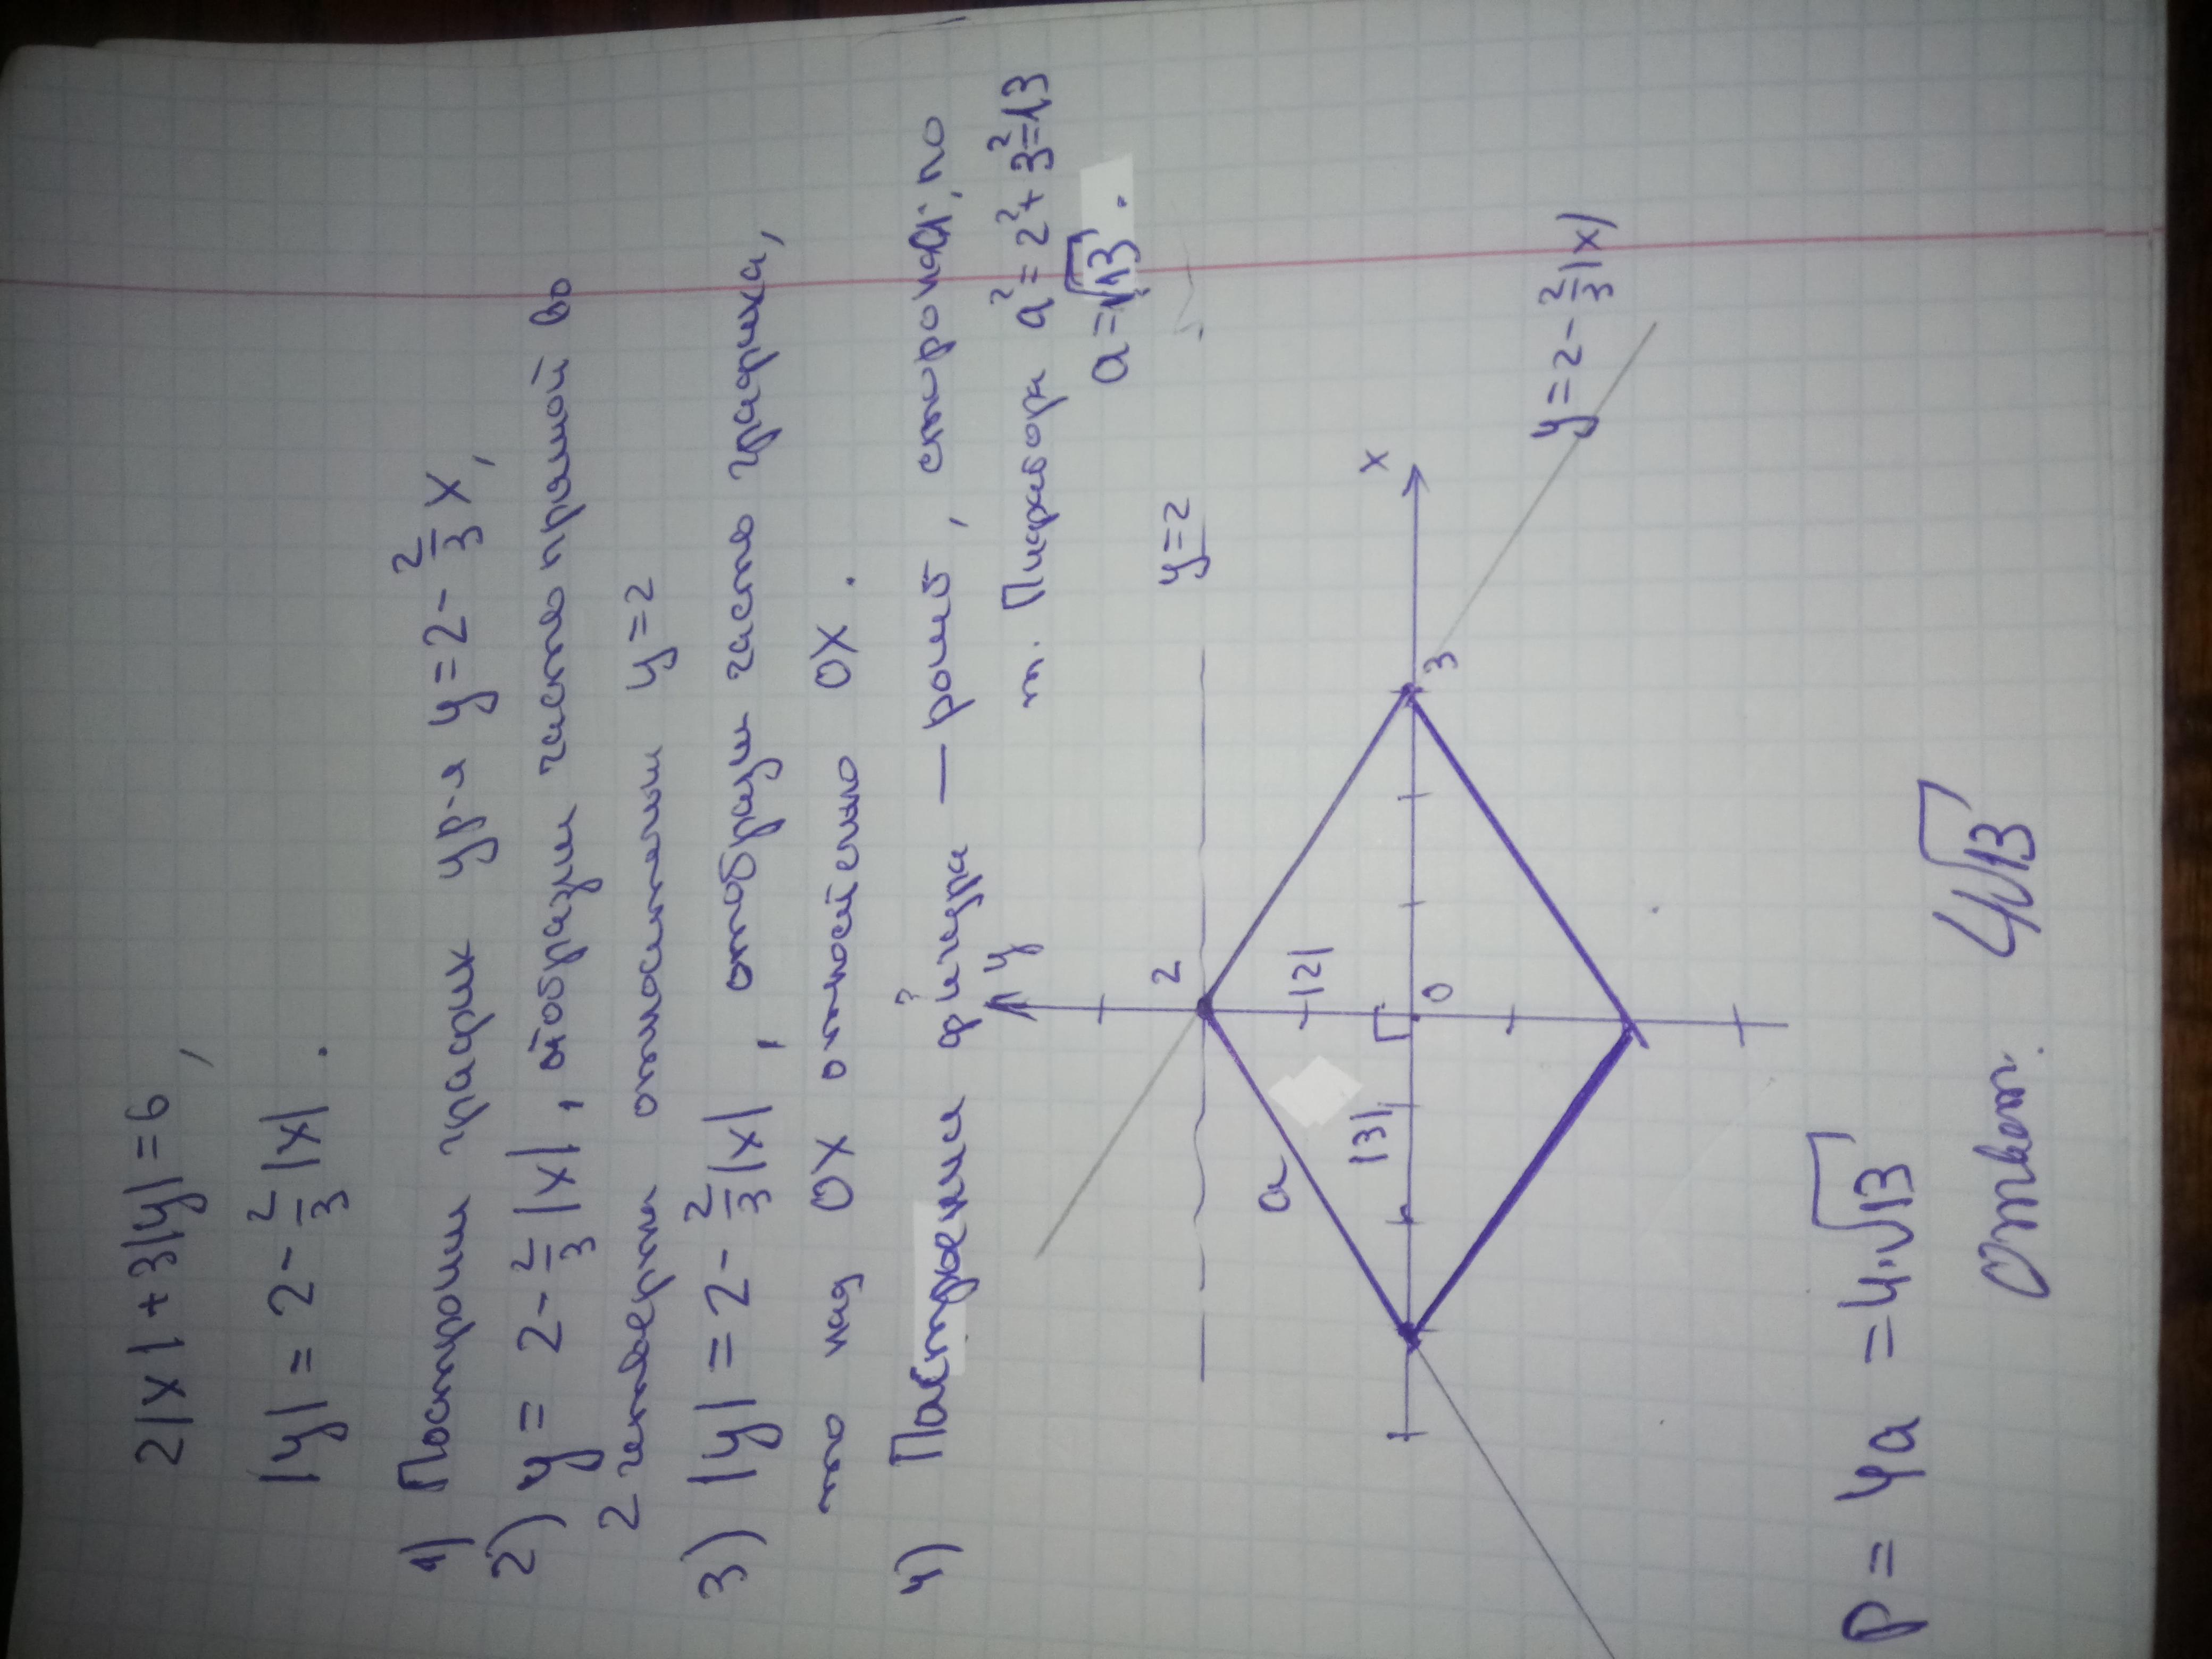 2|x|+3|y|=6,
|y|=2-2/3|x|.
1) Построим график ур-я y=2-2/3x,
2) y=2-2/3|x|, отобразим часть прямой во
2 четверти относительно y=2
3) |y|=2-2/3|x|, отобразим часть графика,
что над OX относительно OX.
4) Построенная фигура — ромб, сторона, по
т. Пифагора a²=2²+3²=13
a=√13.
y
2
y=2
a
|2|
|3|
0
3
x
y=2-2/3|x|
P=4a=4·√13
Ответ: 4√13